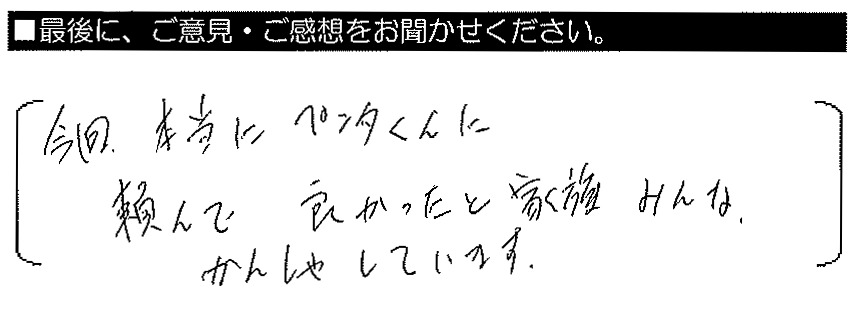 ■最後に、ご意見・ご感想をお聞かせください。
今回、本当にペンタくんに
頼んで 良かったと家族 みんな、
かんしゃしています。